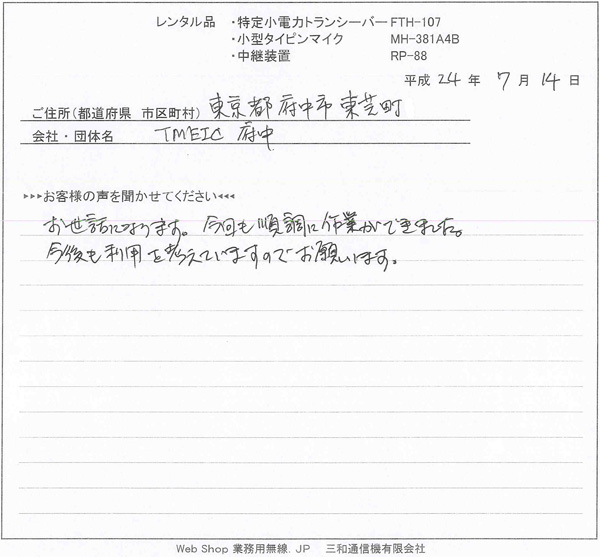 レンタル品 ・特定小電力トランシーバー FTH-107
・小型タイピンマイク MH-381A4B
・中継装置 RP-88
平成 24 年 7 月 14 日
ご住所(都道府県 市区町村) 東京都府中市東芝町
会社・団体名 TMEIC 府中
▸▸▸お客様の声を聞かせてください◂◂◂
お世話になります。今回も順調に作業ができました。
今後も利用を考えていますのでお願いします。
Web Shop 業務用無線.JP 三和通信機有限会社